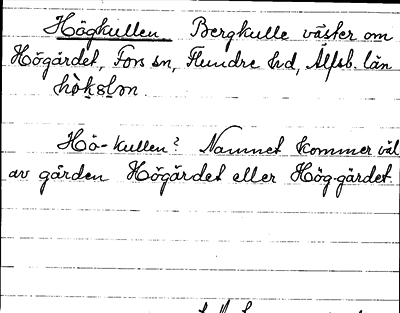 Högkullen Bergkulle väster om
Högärdet, Fors sn, Flundre hd, Älfsb. län
Hö-kullen? Namnet kommer väl
av gården Högärdet eller Hög-gärdet